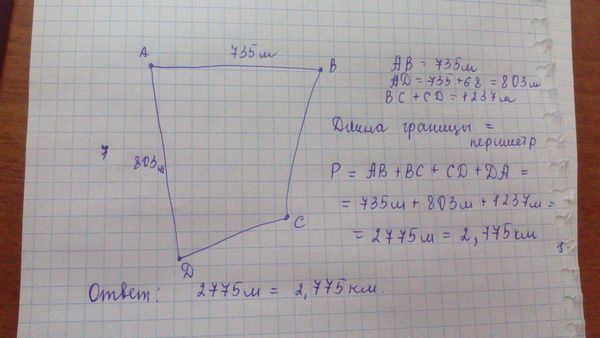 A
735м
B
803м
C
D
AB = 735м
AD = 735+68 = 803м
BC + CD = 1237м
Длина границы =
периметр
P = AB + BC + CD + DA =
= 735м + 803м + 1237м =
= 2775м = 2,775км
Ответ: 2775м = 2,775км.